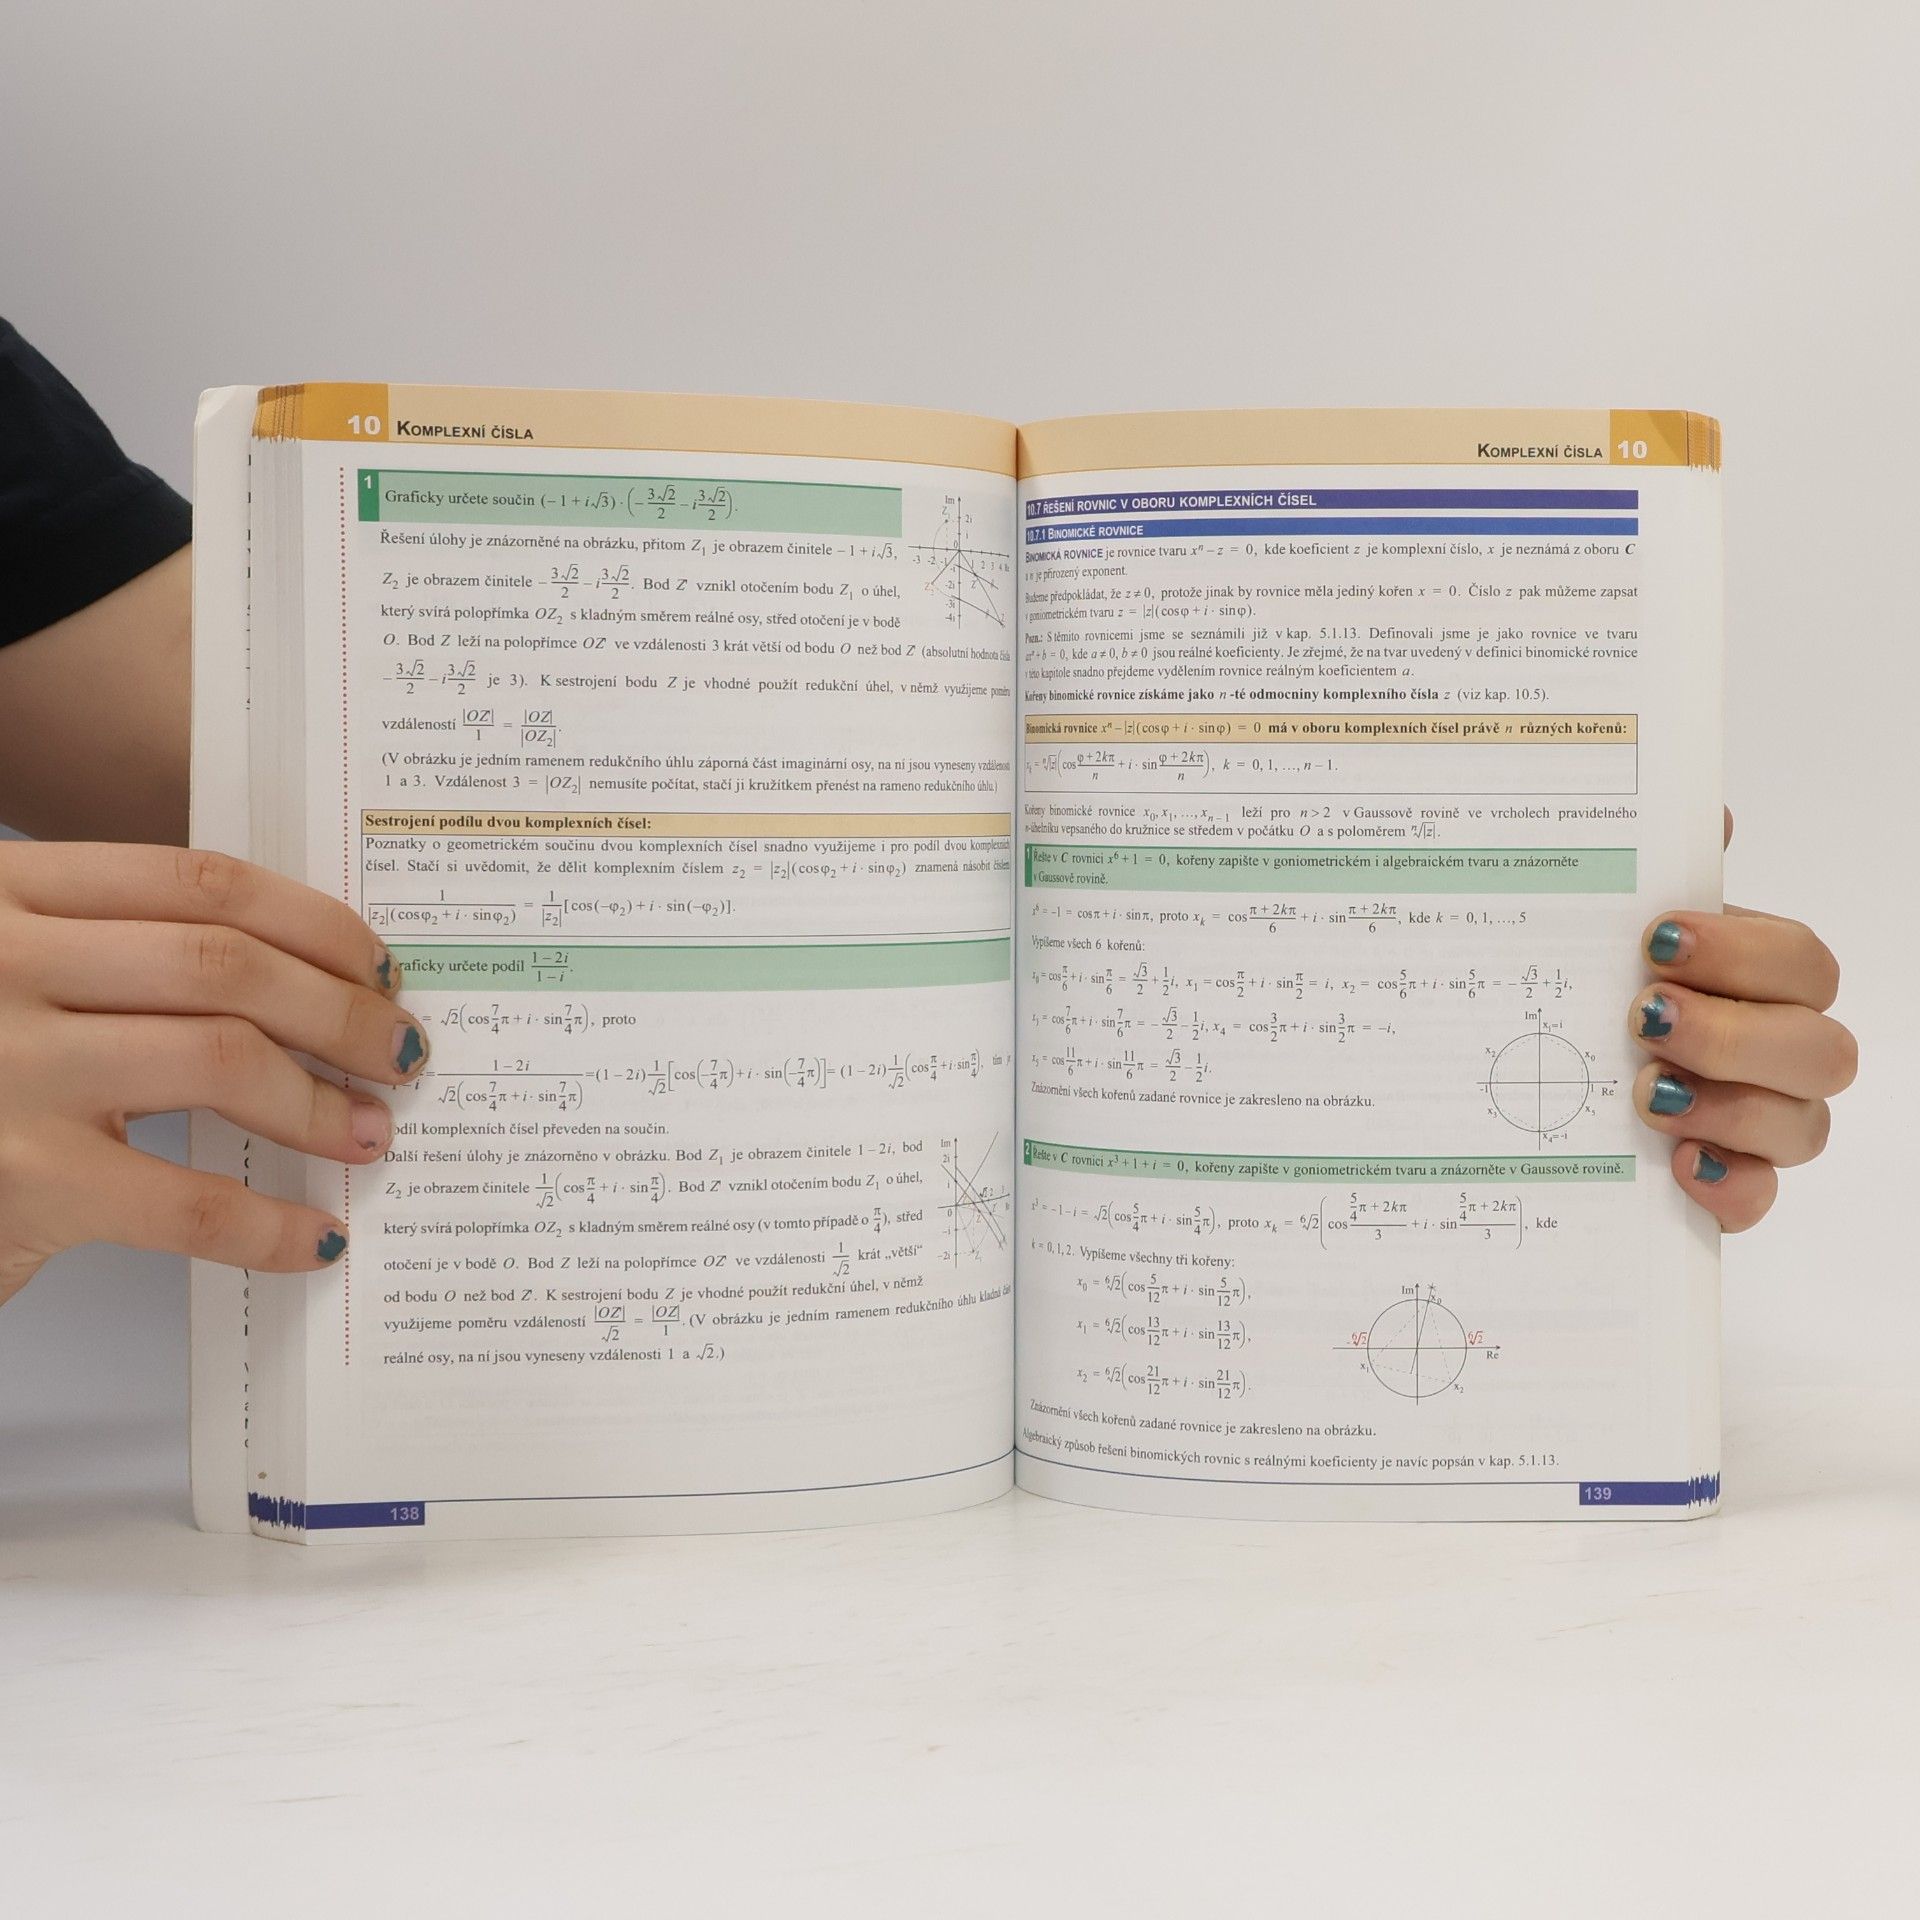 10 KOMPLEXNÍ ČÍSLA
1 Graficky určete součin (– 1 + i√3) · (– 3√2/2 – i 3√2/2).
Řešení úlohy je znázorněné na obrázku, přitom Z₁ je obrazem činitele – 1 + i√3,
Z₂ je obrazem činitele – 3√2/2 – i 3√2/2. Bod Z' vznikl otočením bodu Z₁ o úhel,
který svírá polopřímka OZ₂ s kladným směrem reálné osy, střed otočení je v bodě
O. Bod Z leží na polopřímce OZ' ve vzdálenosti 3 krát větší od bodu O než bod Z' (absolutní hodnota čísla
– 3√2/2 – i 3√2/2 je 3). K sestrojení bodu Z je vhodné použít redukční úhel, v němž využijeme poměru
vzdáleností |OZ'|/1 = |OZ|/|OZ₂|.
(V obrázku je jedním ramenem redukčního úhlu záporná část imaginární osy, na ní jsou vyneseny vzdálenosti
1 a 3. Vzdálenost 3 = |OZ₂| nemusíte počítat, stačí ji kružítkem přenést na rameno redukčního úhlu.)
Sestrojení podílu dvou komplexních čísel:
Poznatky o geometrickém součinu dvou komplexních čísel snadno využijeme i pro podíl dvou komplexních
čísel. Stačí si uvědomit, že dělit komplexním číslem z₂ = |z₂|(cosφ₂ + i · sinφ₂) znamená násobit číslem
1/(|z₂|(cosφ₂ + i · sinφ₂)) = 1/|z₂| [cos(–φ₂) + i · sin(–φ₂)].
raficky určete podíl (1 – 2i)/(1 – i).
= √2(cos 7/4 π + i · sin 7/4 π), proto
= (1 – 2i)/(√2(cos 7/4 π + i · sin 7/4 π)) = (1 – 2i) 1/√2 [cos(– 7/4 π) + i · sin(– 7/4 π)] = (1 – 2i) 1/√2 (cos π/4 + i · sin π/4), tím
odíl komplexních čísel převeden na součin.
Další řešení úlohy je znázorněno v obrázku. Bod Z₁ je obrazem činitele 1 – 2i, bod
Z₂ je obrazem činitele 1/√2 (cos π/4 + i · sin π/4). Bod Z' vznikl otočením bodu Z₁ o úhel,
který svírá polopřímka OZ₂ s kladným směrem reálné osy (v tomto případě o π/4), střed
otočení je v bodě O. Bod Z leží na polopřímce OZ' ve vzdálenosti 1/√2 krát „větší“
od bodu O než bod Z'. K sestrojení bodu Z je vhodné použít redukční úhel, v němž
využijeme poměru vzdáleností |OZ'|/√2 = |OZ|/1. (V obrázku je jedním ramenem redukčního úhlu kladná část
reálné osy, na ní jsou vyneseny vzdálenosti 1 a √2.)
138
KOMPLEXNÍ ČÍSLA 10
10.7 ŘEŠENÍ ROVNIC V OBORU KOMPLEXNÍCH ČÍSEL
10.7.1 BINOMICKÉ ROVNICE
BINOMICKÁ ROVNICE je rovnice tvaru xⁿ – z = 0, kde koeficient z je komplexní číslo, x je neznámá z oboru C
a n je přirozený exponent.
Budeme předpokládat, že z ≠ 0, protože jinak by rovnice měla jediný kořen x = 0. Číslo z pak můžeme zapsat
v goniometrickém tvaru z = |z|(cosφ + i · sinφ).
Pozn.: S těmito rovnicemi jsme se seznámili již v kap. 5.1.13. Definovali jsme je jako rovnice ve tvaru
axⁿ + b = 0, kde a ≠ 0, b ≠ 0 jsou reálné koeficienty. Je zřejmé, že na tvar uvedený v definici binomické rovnice
v této kapitole snadno přejdeme vydělením rovnice reálným koeficientem a.
Kořeny binomické rovnice získáme jako n -té odmocniny komplexního čísla z (viz kap. 10.5).
Binomická rovnice xⁿ – |z|(cosφ + i · sinφ) = 0 má v oboru komplexních čísel právě n různých kořenů:
xₖ = ⁿ√|z| (cos (φ + 2kπ)/n + i · sin (φ + 2kπ)/n), k = 0, 1, …, n – 1.
Kořeny binomické rovnice x₀, x₁, …, xₙ₋₁ leží pro n > 2 v Gaussově rovině ve vrcholech pravidelného
n-úhelníku vepsaného do kružnice se středem v počátku O a s poloměrem ⁿ√|z|.
1 Řešte v C rovnici x⁶ + 1 = 0, kořeny zapište v goniometrickém i algebraickém tvaru a znázorněte
v Gaussově rovině.
x⁶ = –1 = cosπ + i · sinπ, proto xₖ = cos (π + 2kπ)/6 + i · sin (π + 2kπ)/6, kde k = 0, 1, …, 5
Vypíšeme všech 6 kořenů:
x₀ = cos π/6 + i · sin π/6 = √3/2 + 1/2 i, x₁ = cos π/2 + i · sin π/2 = i, x₂ = cos 5/6 π + i · sin 5/6 π = – √3/2 + 1/2 i,
x₃ = cos 7/6 π + i · sin 7/6 π = – √3/2 – 1/2 i, x₄ = cos 3/2 π + i · sin 3/2 π = –i,
x₅ = cos 11/6 π + i · sin 11/6 π = √3/2 – 1/2 i.
Znázornění všech kořenů zadané rovnice je zakresleno na obrázku.
Im x₁=i
x₂ x₀
–1 1 Re
x₃ x₅
x₄=–i
2 Řešte v C rovnici x³ + 1 + i = 0, kořeny zapište v goniometrickém tvaru a znázorněte v Gaussově rovině.
x³ = –1 – i = √2(cos 5/4 π + i · sin 5/4 π), proto xₖ = ⁶√2 (cos (5/4 π + 2kπ)/3 + i · sin (5/4 π + 2kπ)/3), kde
k = 0, 1, 2. Vypíšeme všechny tři kořeny:
x₀ = ⁶√2(cos 5/12 π + i · sin 5/12 π),
x₁ = ⁶√2(cos 13/12 π + i · sin 13/12 π),
x₂ = ⁶√2(cos 21/12 π + i · sin 21/12 π).
Im x₀
–⁶√2 ⁶√2
Re
x₁ x₂
Znázornění všech kořenů zadané rovnice je zakresleno na obrázku.
Algebraický způsob řešení binomických rovnic s reálnými koeficienty je navíc popsán v kap. 5.1.13.
139